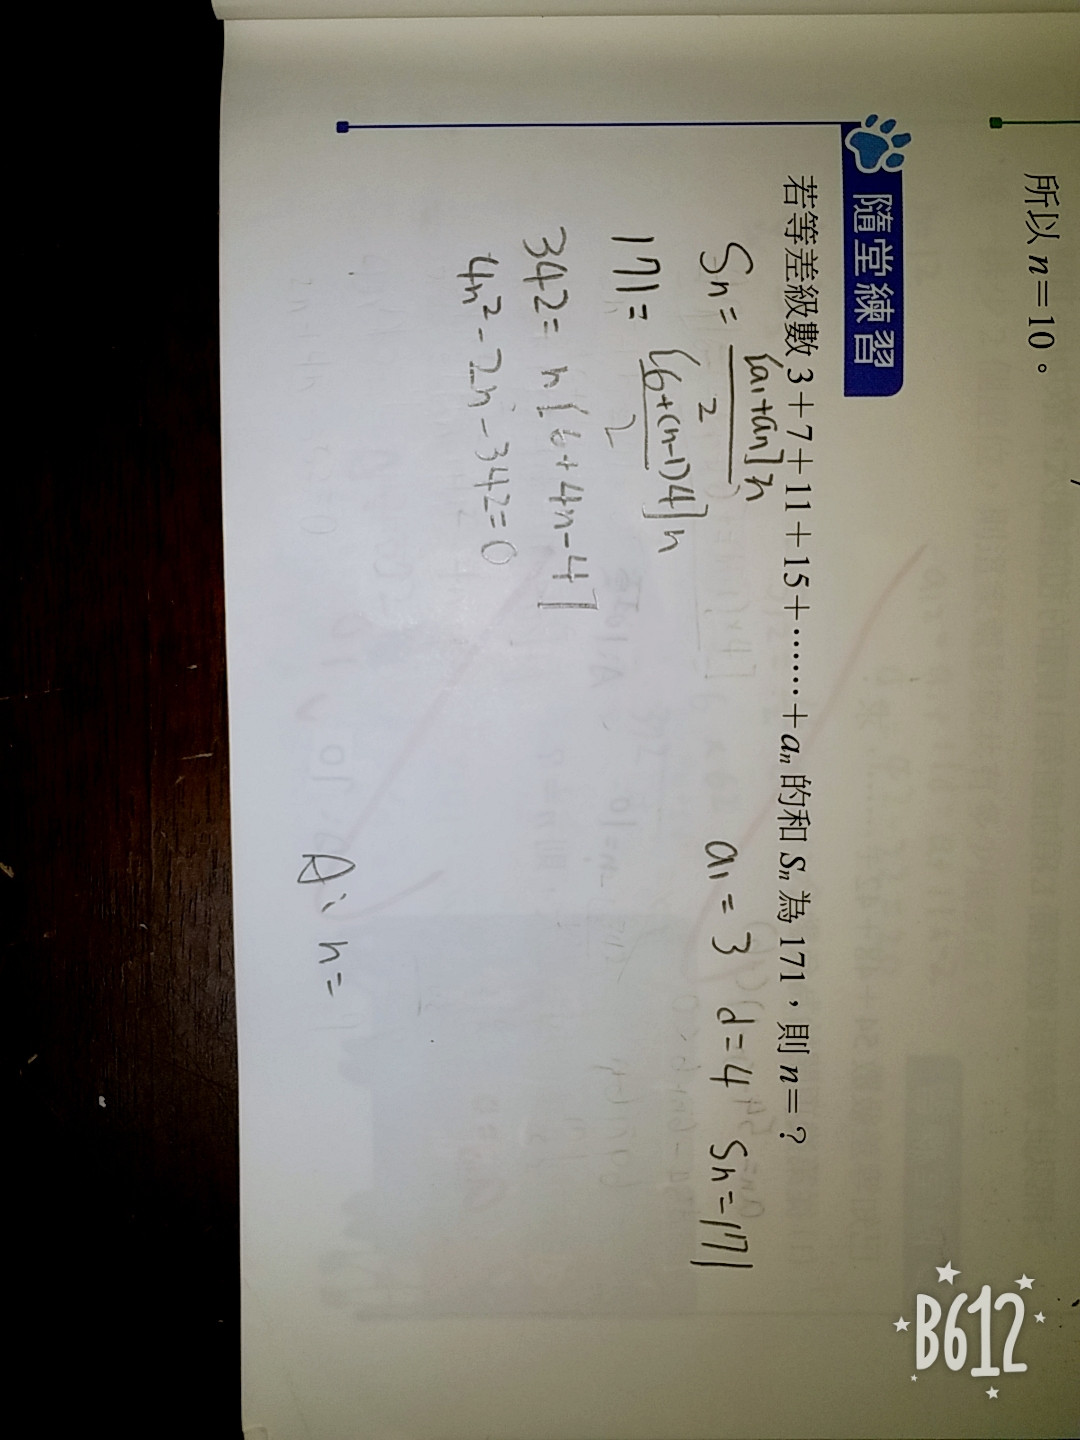 所以 n＝10。
隨堂練習
若等差級數 3＋7＋11＋15＋……＋aₙ 的和 Sₙ 為 171，則 n＝？
Sn = [a₁+an]n / 2
a₁ = 3 d = 4 Sn = 171
171 = [6+(n-1)4]n / 2
342 = n[6+4n-4]
4n² - 2n - 342 = 0
A: n =
B612